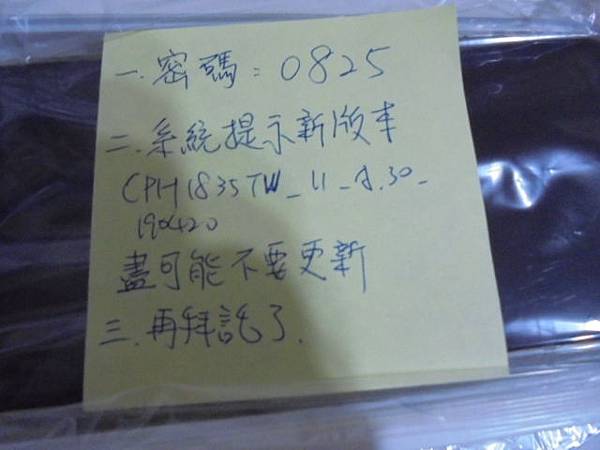 一. 密碼：0825
二. 系統提示新版本
CPH1835TW_11_A.30_
190420
盡可能不要更新
三. 再拜託了.